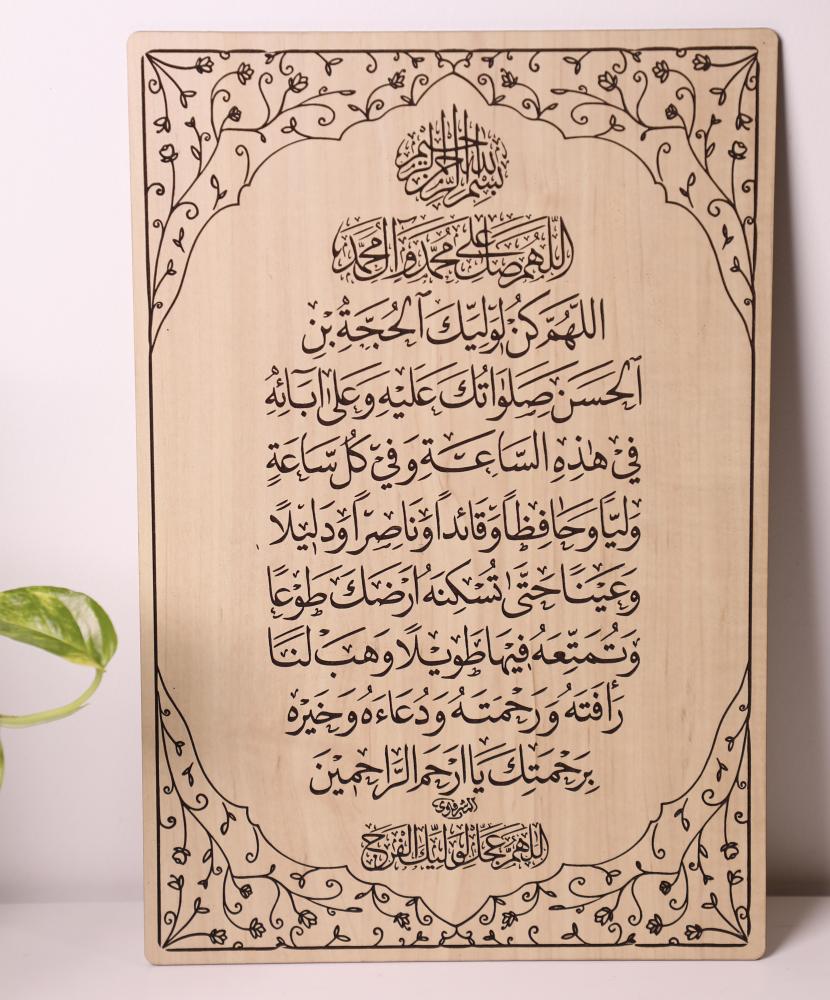 بسم الله الرحمن الرحيم
اللهم صل على محمد وآل محمد
اللهُمَّ كُنْ لِوَلِيِّكَ ٱلْحُجَّةِ بْنِ
ٱلْحَسَنِ صَلَوَاتُكَ عَلَيْهِ وَعَلَىٰ آبَائِهِ
فِي هٰذِهِ السَّاعَةِ وَفِي كُلِّ سَاعَةٍ
وَلِيًّا وَحَافِظًا وَقَائِدًا وَنَاصِرًا وَدَلِيلًا
وَعَيْنًا حَتَّىٰ تُسْكِنَهُ أَرْضَكَ طَوْعًا
وَتُمَتِّعَهُ فِيهَا طَوِيلًا وَهَبْ لَنَا
رَأْفَتَهُ وَرَحْمَتَهُ وَدُعَاءَهُ وَخَيْرَهُ
بِرَحْمَتِكَ يَا أَرْحَمَ الرَّاحِمِينَ
اللهم عجل لوليك الفرج